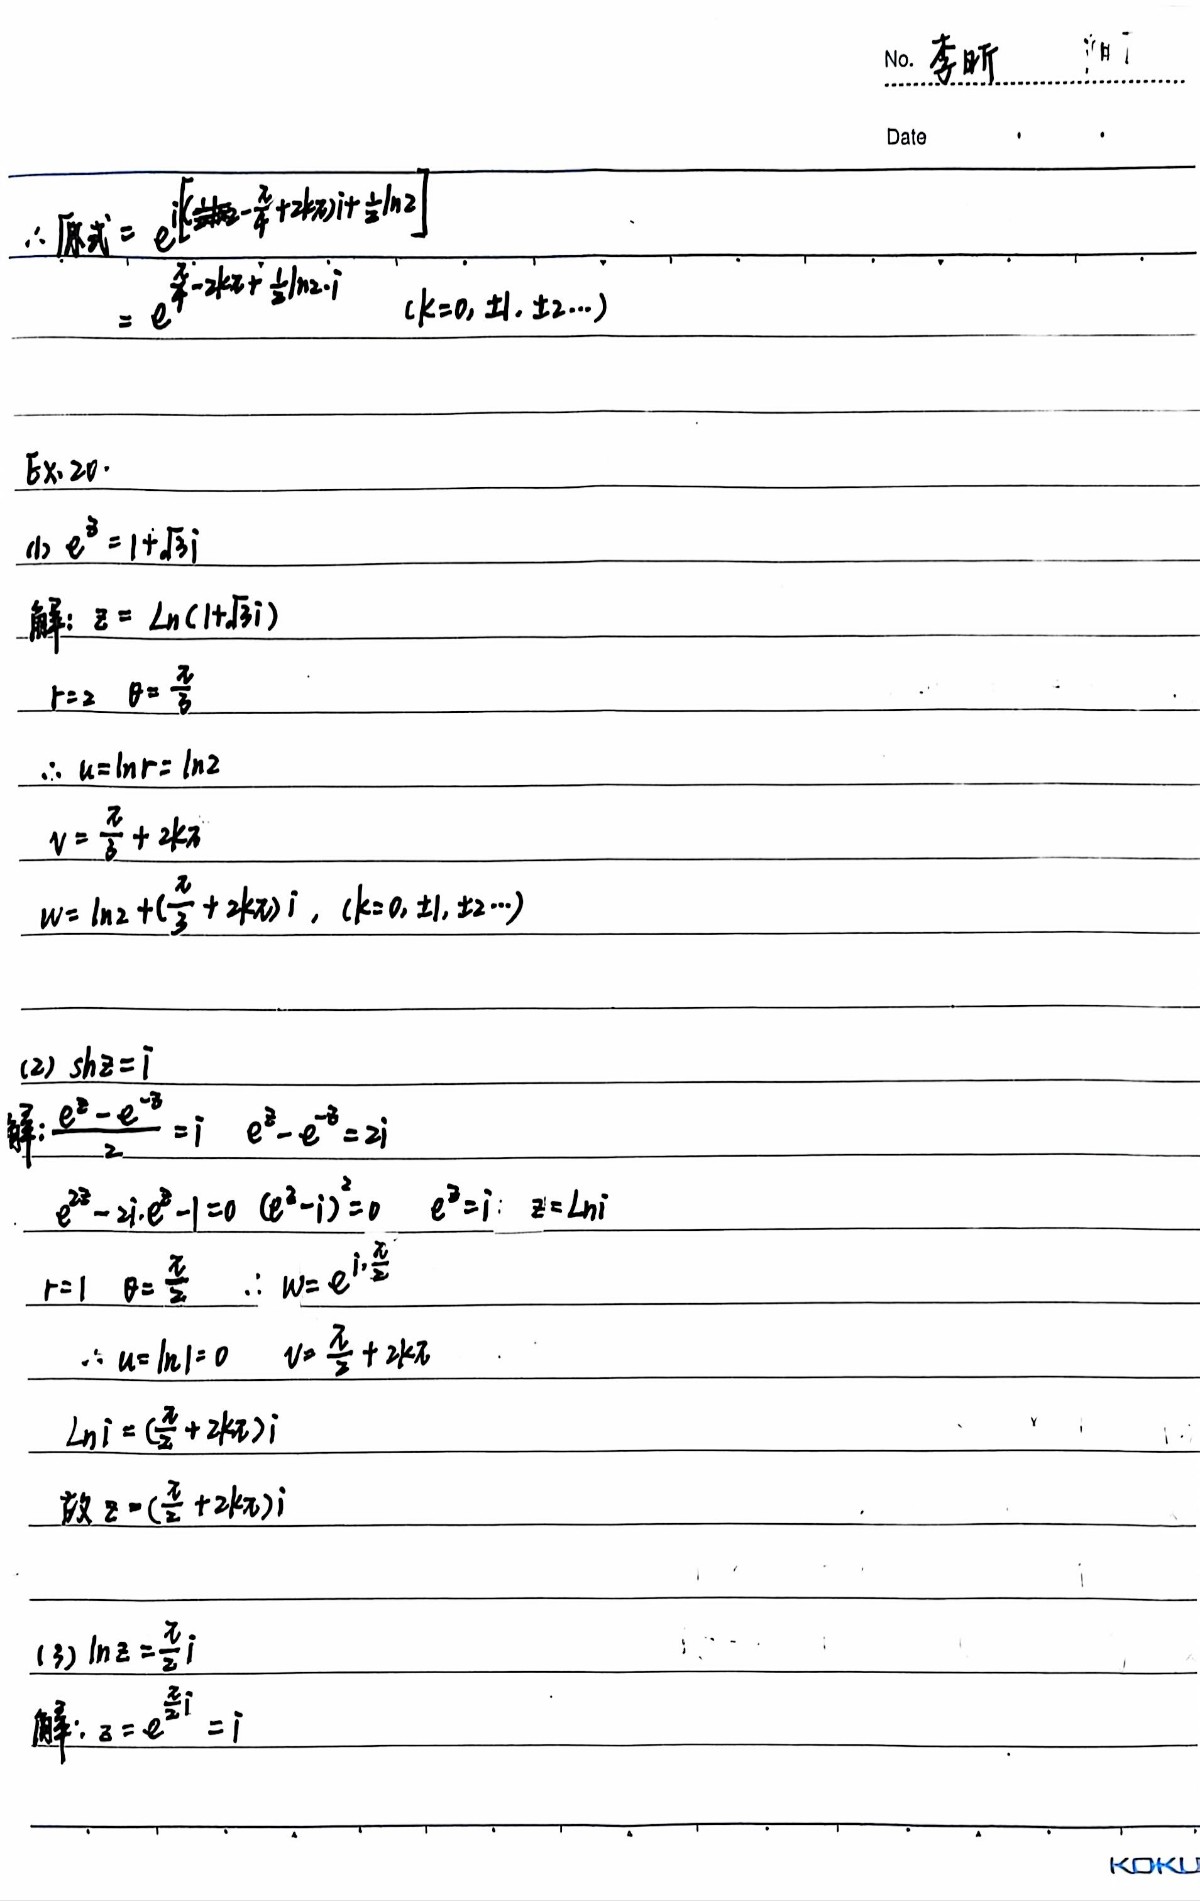 No. 李昕
Date
∴原式 = e^{i[(-π/4+2kπ)i+1/2 ln2]}
= e^{π/4-2kπ+1/2 ln2·i} (k=0, ±1, ±2…)
Ex.20.
(1) e^z = 1+√3i
解: z = Ln(1+√3i)
r=2 θ=π/3
∴ u=lnr=ln2
v=π/3+2kπ
w=ln2+(π/3+2kπ)i, (k=0, ±1, ±2…)
(2) shz=i
解: (e^z-e^{-z})/2=i e^z-e^{-z}=2i
e^{2z}-2i·e^z-1=0 (e^z-i)^2=0 e^z=i: z=Lni
r=1 θ=π/2 ∴ w=e^{i·π/2}
∴ u=ln1=0 v=π/2+2kπ
Lni=(π/2+2kπ)i
故 z=(π/2+2kπ)i
(3) lnz=π/2 i
解: z=e^{π/2 i}=i
KOKU